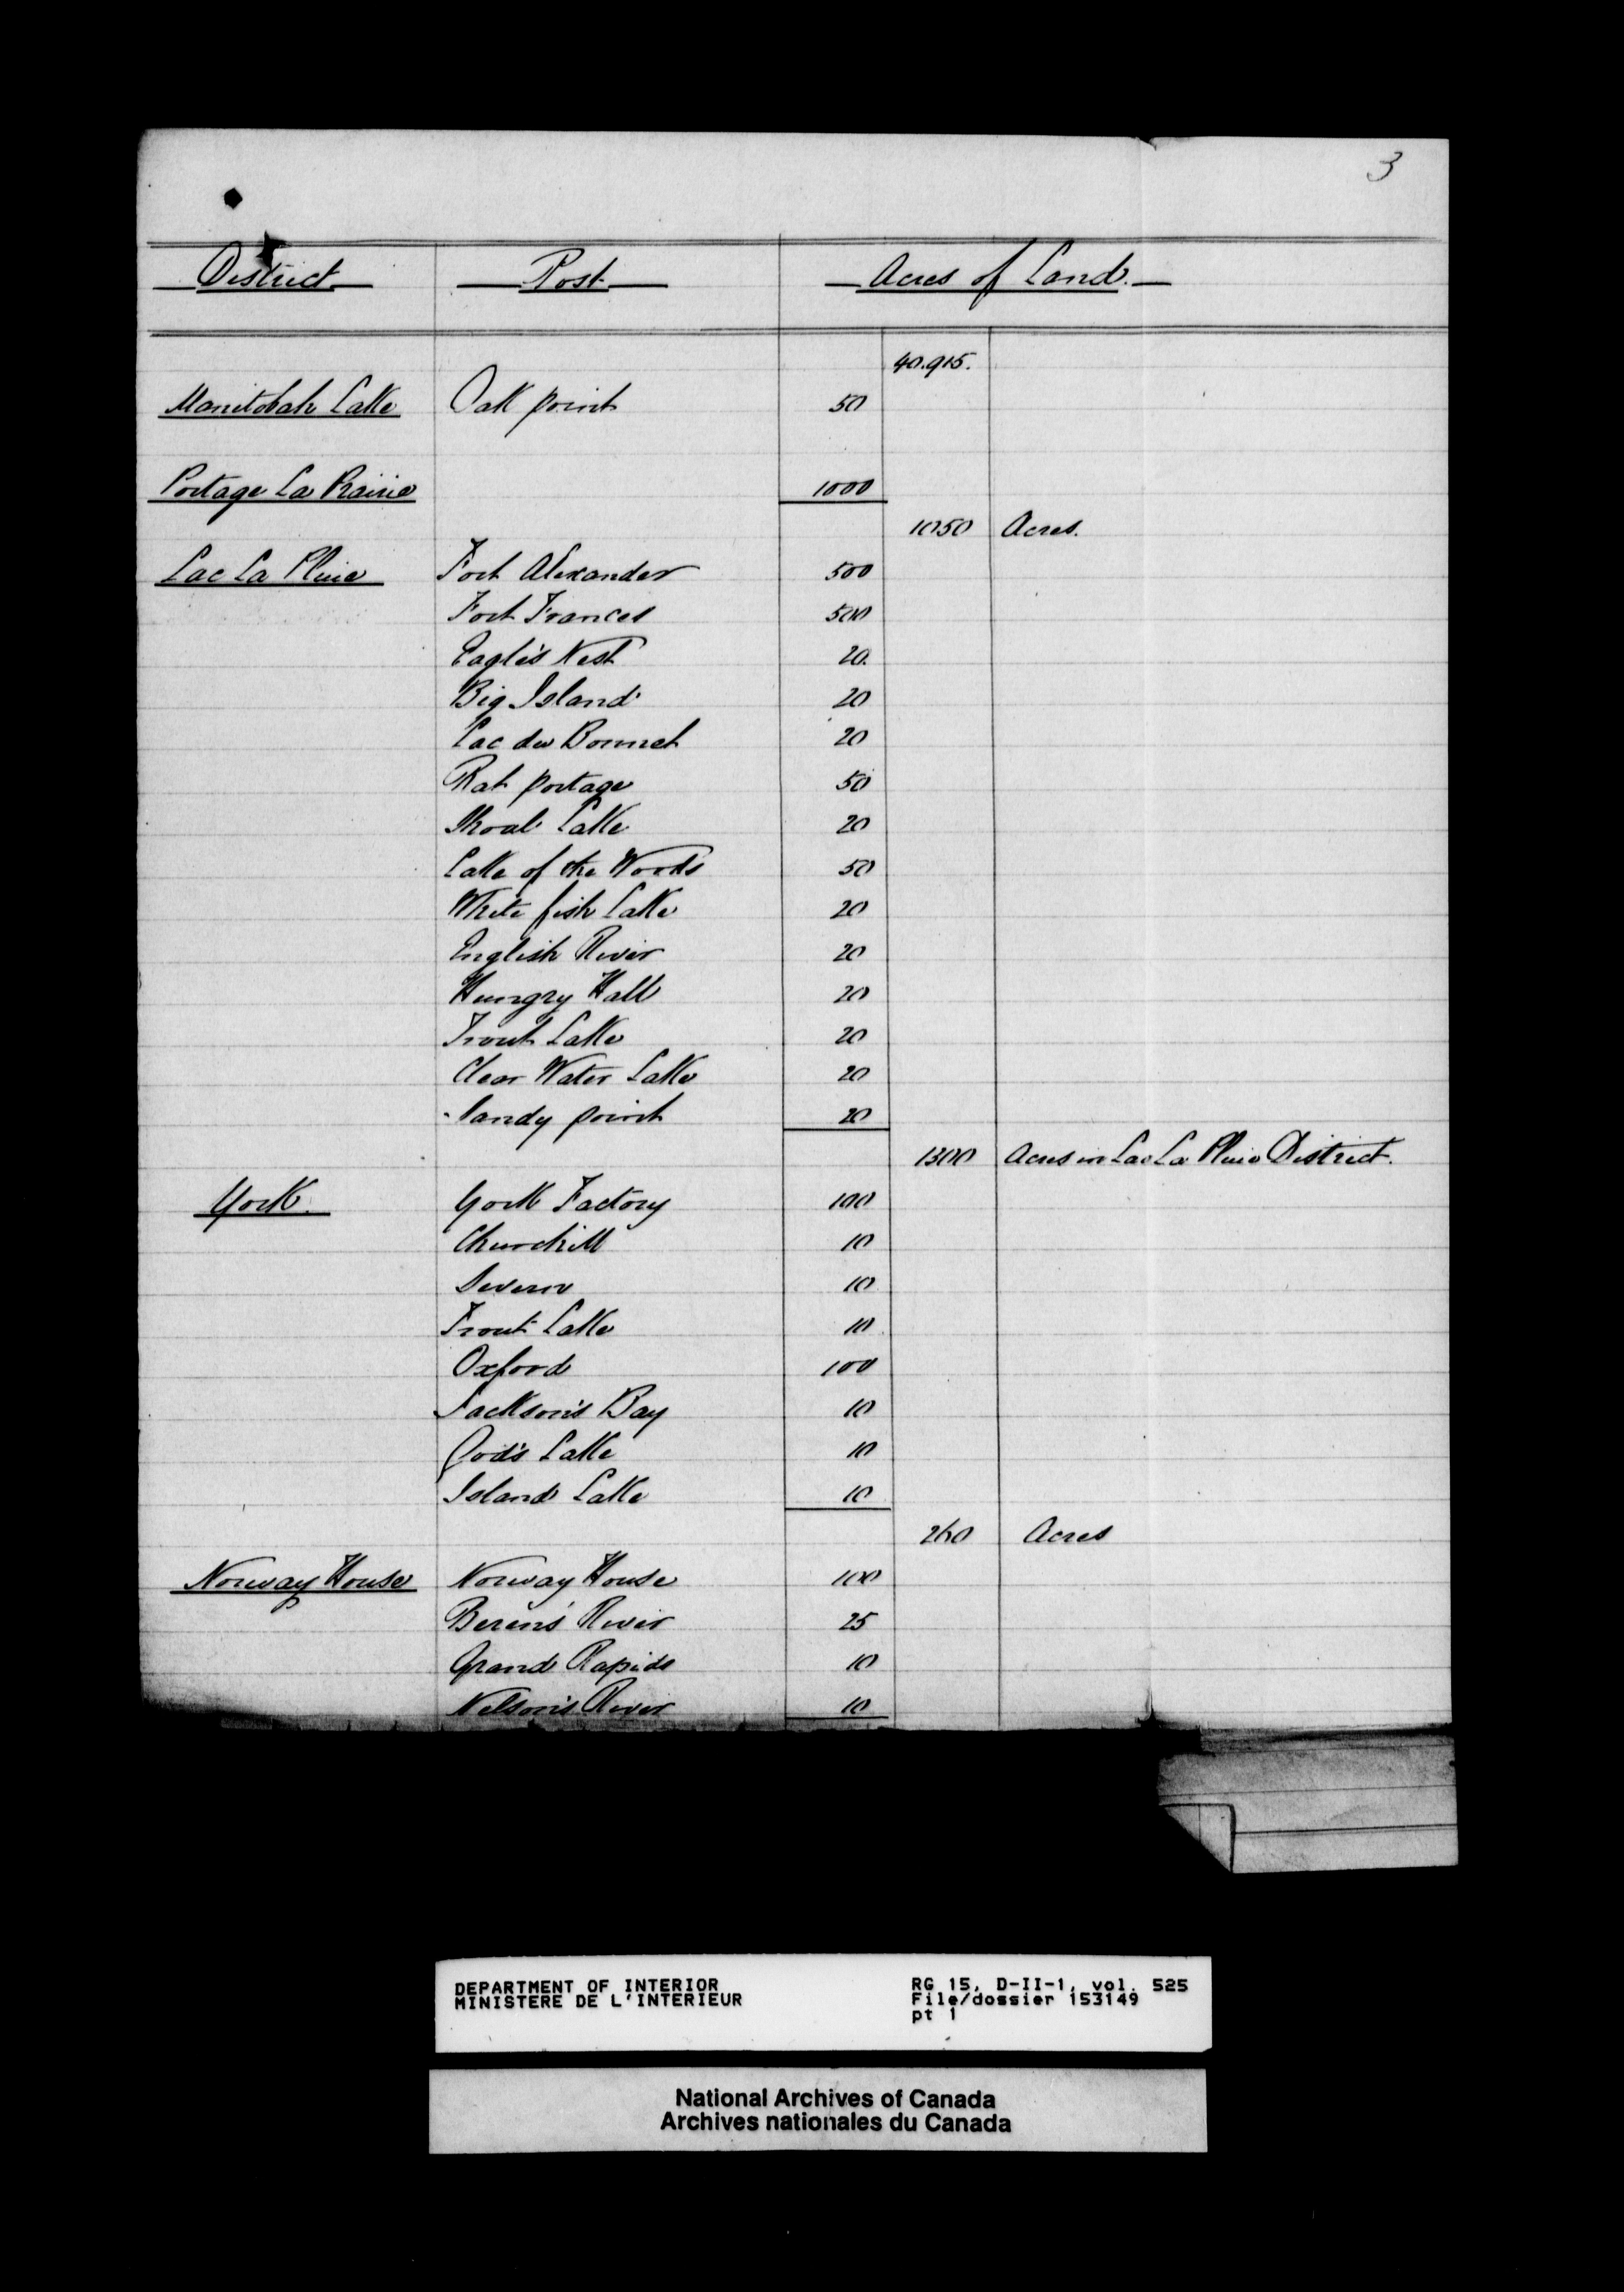 3
District Post Acres of Land.
40.915.
Manitobah Lake Oak point 50
Portage La Prairie 1000
1050 Acres.
Lac La Pluie Fort Alexander 500
Fort Frances 500
Eagle's Nest 20.
Big Island 20
Lac du Bonnet 20
Rat portage 50
Shoal Lake 20
Lake of the Woods 50
White fish Lake 20
English River 20
Hungry Hall 20
Trout Lake 20
Clear Water Lake 20
Sandy point 20
1300 Acres in Lac La Pluie District.
York. York Factory 100
Churchill 10
Severn 10
Trout Lake 10
Oxford 100
Jackson's Bay 10
God's Lake 10
Island Lake 10
260 Acres
Norway House Norway House 100
Beren's River 25
Grand Rapids 10
Nelson's River 10
DEPARTMENT OF INTERIOR RG 15, D-II-1, vol. 525
MINISTERE DE L'INTERIEUR File/dossier 153149
pt 1
National Archives of Canada
Archives nationales du Canada